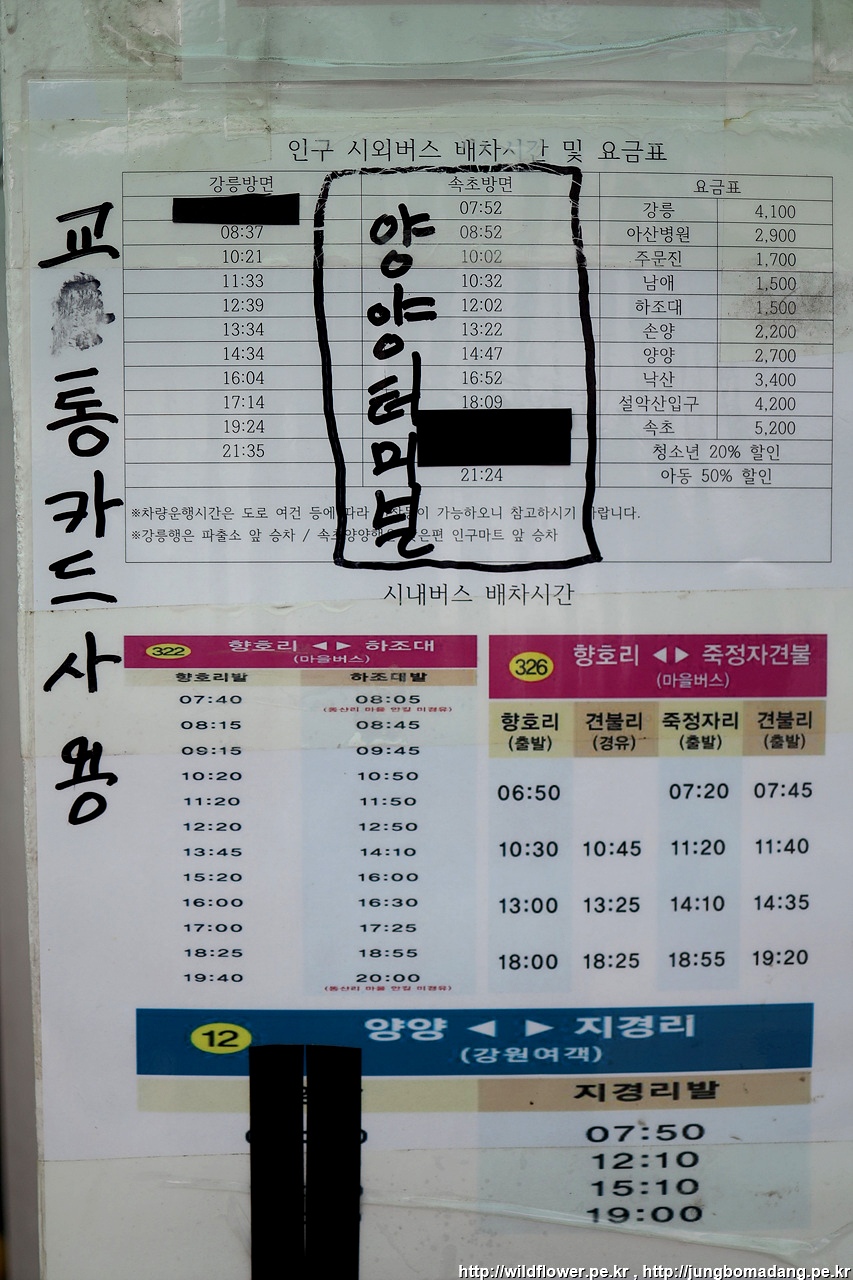 인구 시외버스 배차시간 및 요금표
강릉방면 속초방면 요금표
07:52 강릉 4,100
08:37 08:52 아산병원 2,900
10:21 10:02 주문진 1,700
11:33 10:32 남애 1,500
12:39 12:02 하조대 1,500
13:34 13:22 손양 2,200
14:34 14:47 양양 2,700
16:04 16:52 낙산 3,400
17:14 18:09 설악산입구 4,200
19:24 속초 5,200
21:35 청소년 20% 할인
21:24 아동 50% 할인
※차량운행시간은 도로 여건 등에 따라 가능하오니 참고하시기 바랍니다.
※강릉행은 파출소 앞 승차 / 인구마트 앞 승차
양양터미널
교통카드사용
시내버스 배차시간
322 향호리 ◀ ▶ 하조대
(마을버스)
향호리발 하조대발
07:40 08:05
(동산리 마을 안길 미경유)
08:15 08:45
09:15 09:45
10:20 10:50
11:20 11:50
12:20 12:50
13:45 14:10
15:20 16:00
16:00 16:30
17:00 17:25
18:25 18:55
19:40 20:00
(동산리 마을 안길 미경유)
326 향호리 ◀ ▶ 죽정자견불
(마을버스)
향호리 견불리 죽정자리 견불리
(출발) (경유) (출발) (출발)
06:50 07:20 07:45
10:30 10:45 11:20 11:40
13:00 13:25 14:10 14:35
18:00 18:25 18:55 19:20
12 양양 ◀ ▶ 지경리
(강원여객)
지경리발
07:50
12:10
15:10
19:00
http://wildflower.pe.kr , http://jungbomadang.pe.kr